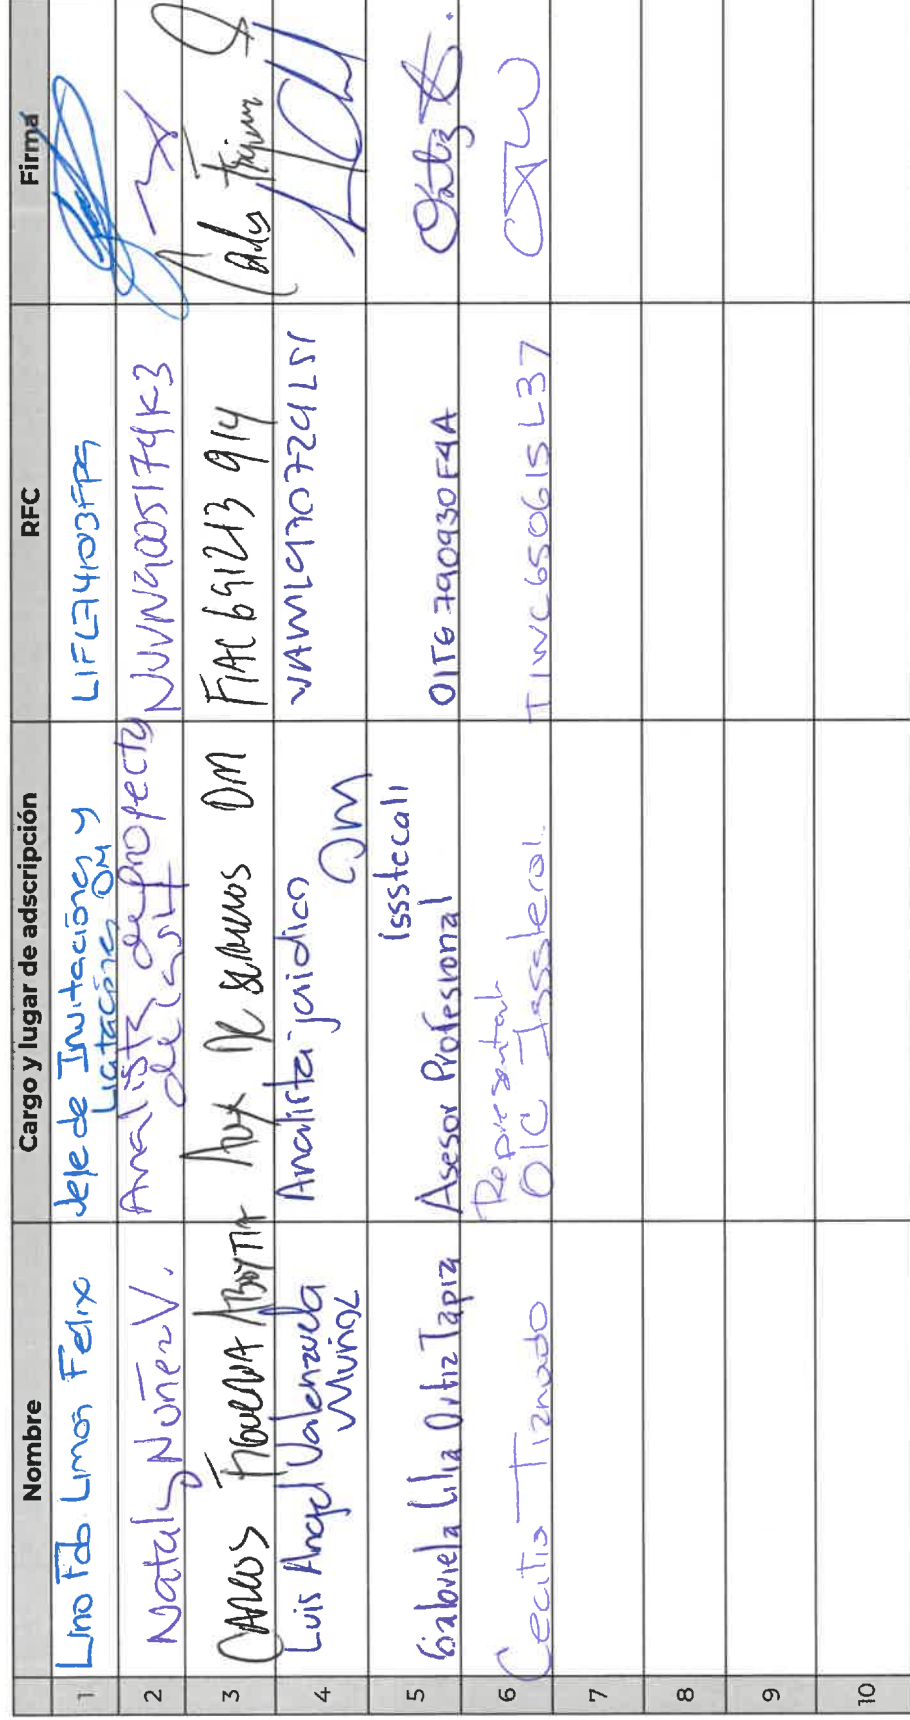 Nombre Cargo y lugar de adscripción RFC Firma
1 Lino Fab. Limon Felix Jefe de Invitaciones y
Licitaciones OM LIFL741103FP9
2 Nataly Nuñez V. Analista de proyecto
NUVN9005174K3
3 CARLOS FIGUEROA ABOYTIA Aux DE SERVICIOS OM FIAC691213 914
4 Luis Angel Valenzuela
Muñoz Analista jurídico
OM VAML970724LS1
5 Gabriela Lilia Ortiz Tapia Asesor Profesional
Issstecali OITG790930F4A Ortiz
6 Cecilia Tiznado Representante
OIC Issstecali TIWC650615L37
7
8
9
10